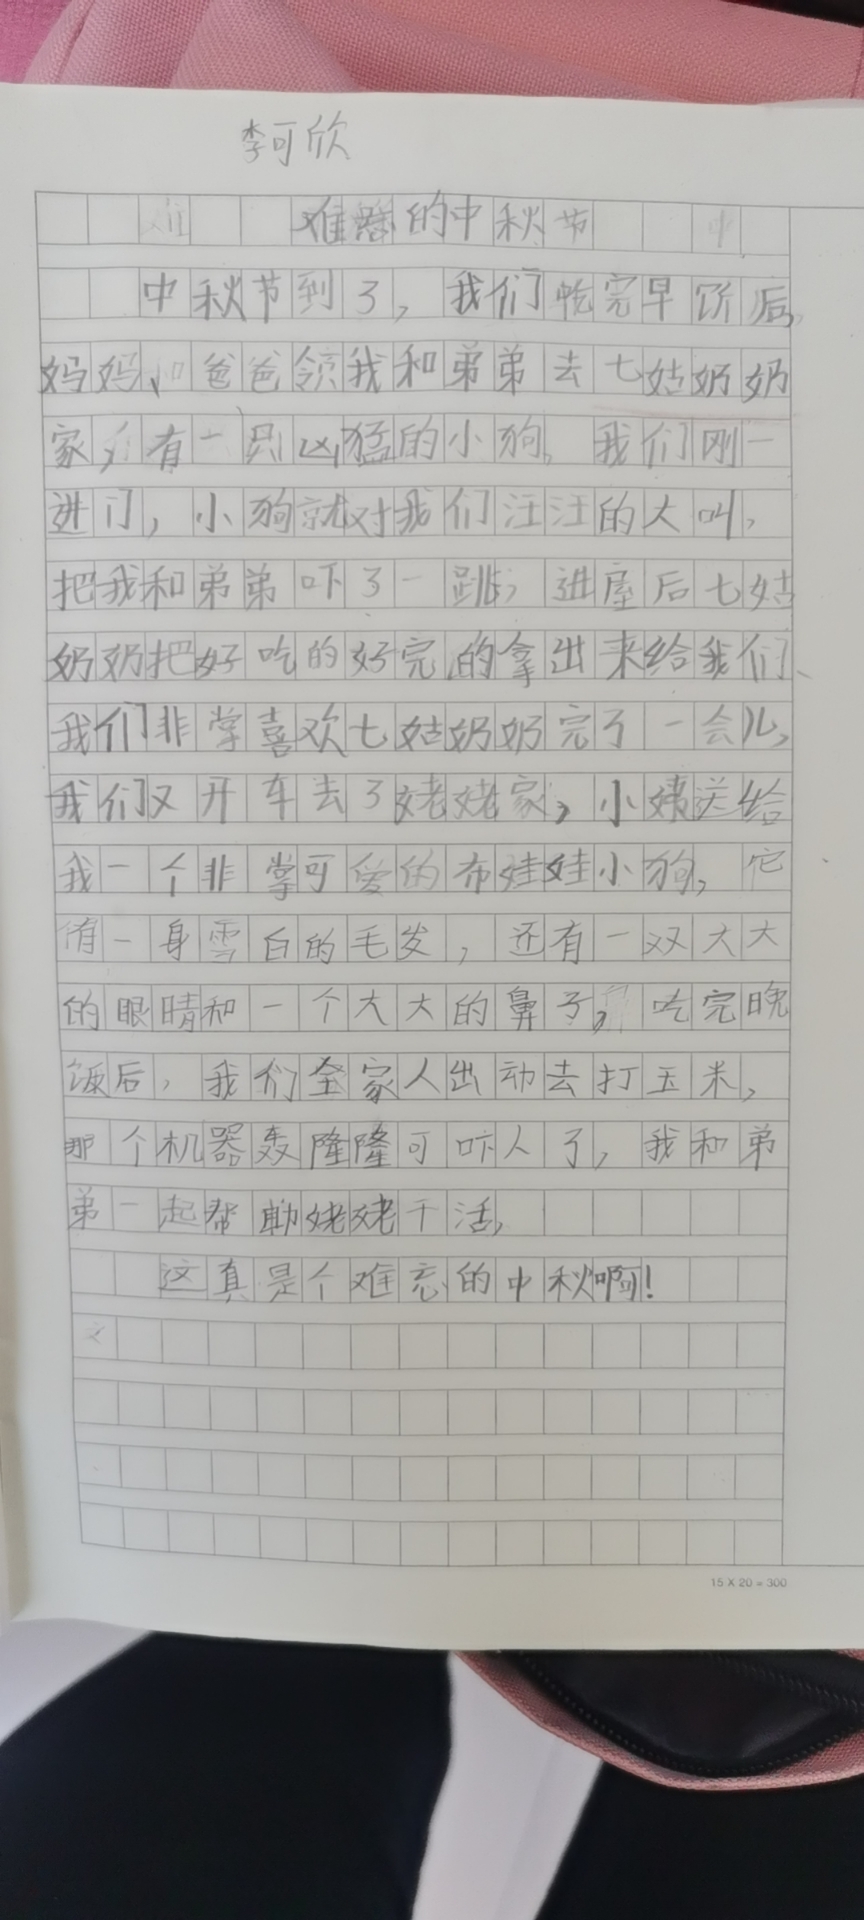 李可欣
难忘的中秋节
中秋节到了，我们吃完早饭后，
妈妈、和爸爸领我和弟弟去七姑奶奶
家，有一只凶猛的小狗，我们刚一
进门，小狗就对我们汪汪的大叫，
把我和弟弟吓了一跳，进屋后七姑
奶奶把好吃的好完的拿出来给我们、
我们非掌喜欢七姑奶奶完了一会儿，
我们又开车去了姥姥家，小姨送给
我一个非掌可爱的布娃娃小狗，它
有一身雪白的毛发，还有一双大大
的眼睛和一个大大的鼻子，吃完晚
饭后，我们全家人出动去打玉米，
那个机器轰隆隆可吓人了，我和弟
弟一起帮助姥姥干活，
这真是个难忘的中秋啊！
15 X 20 = 300